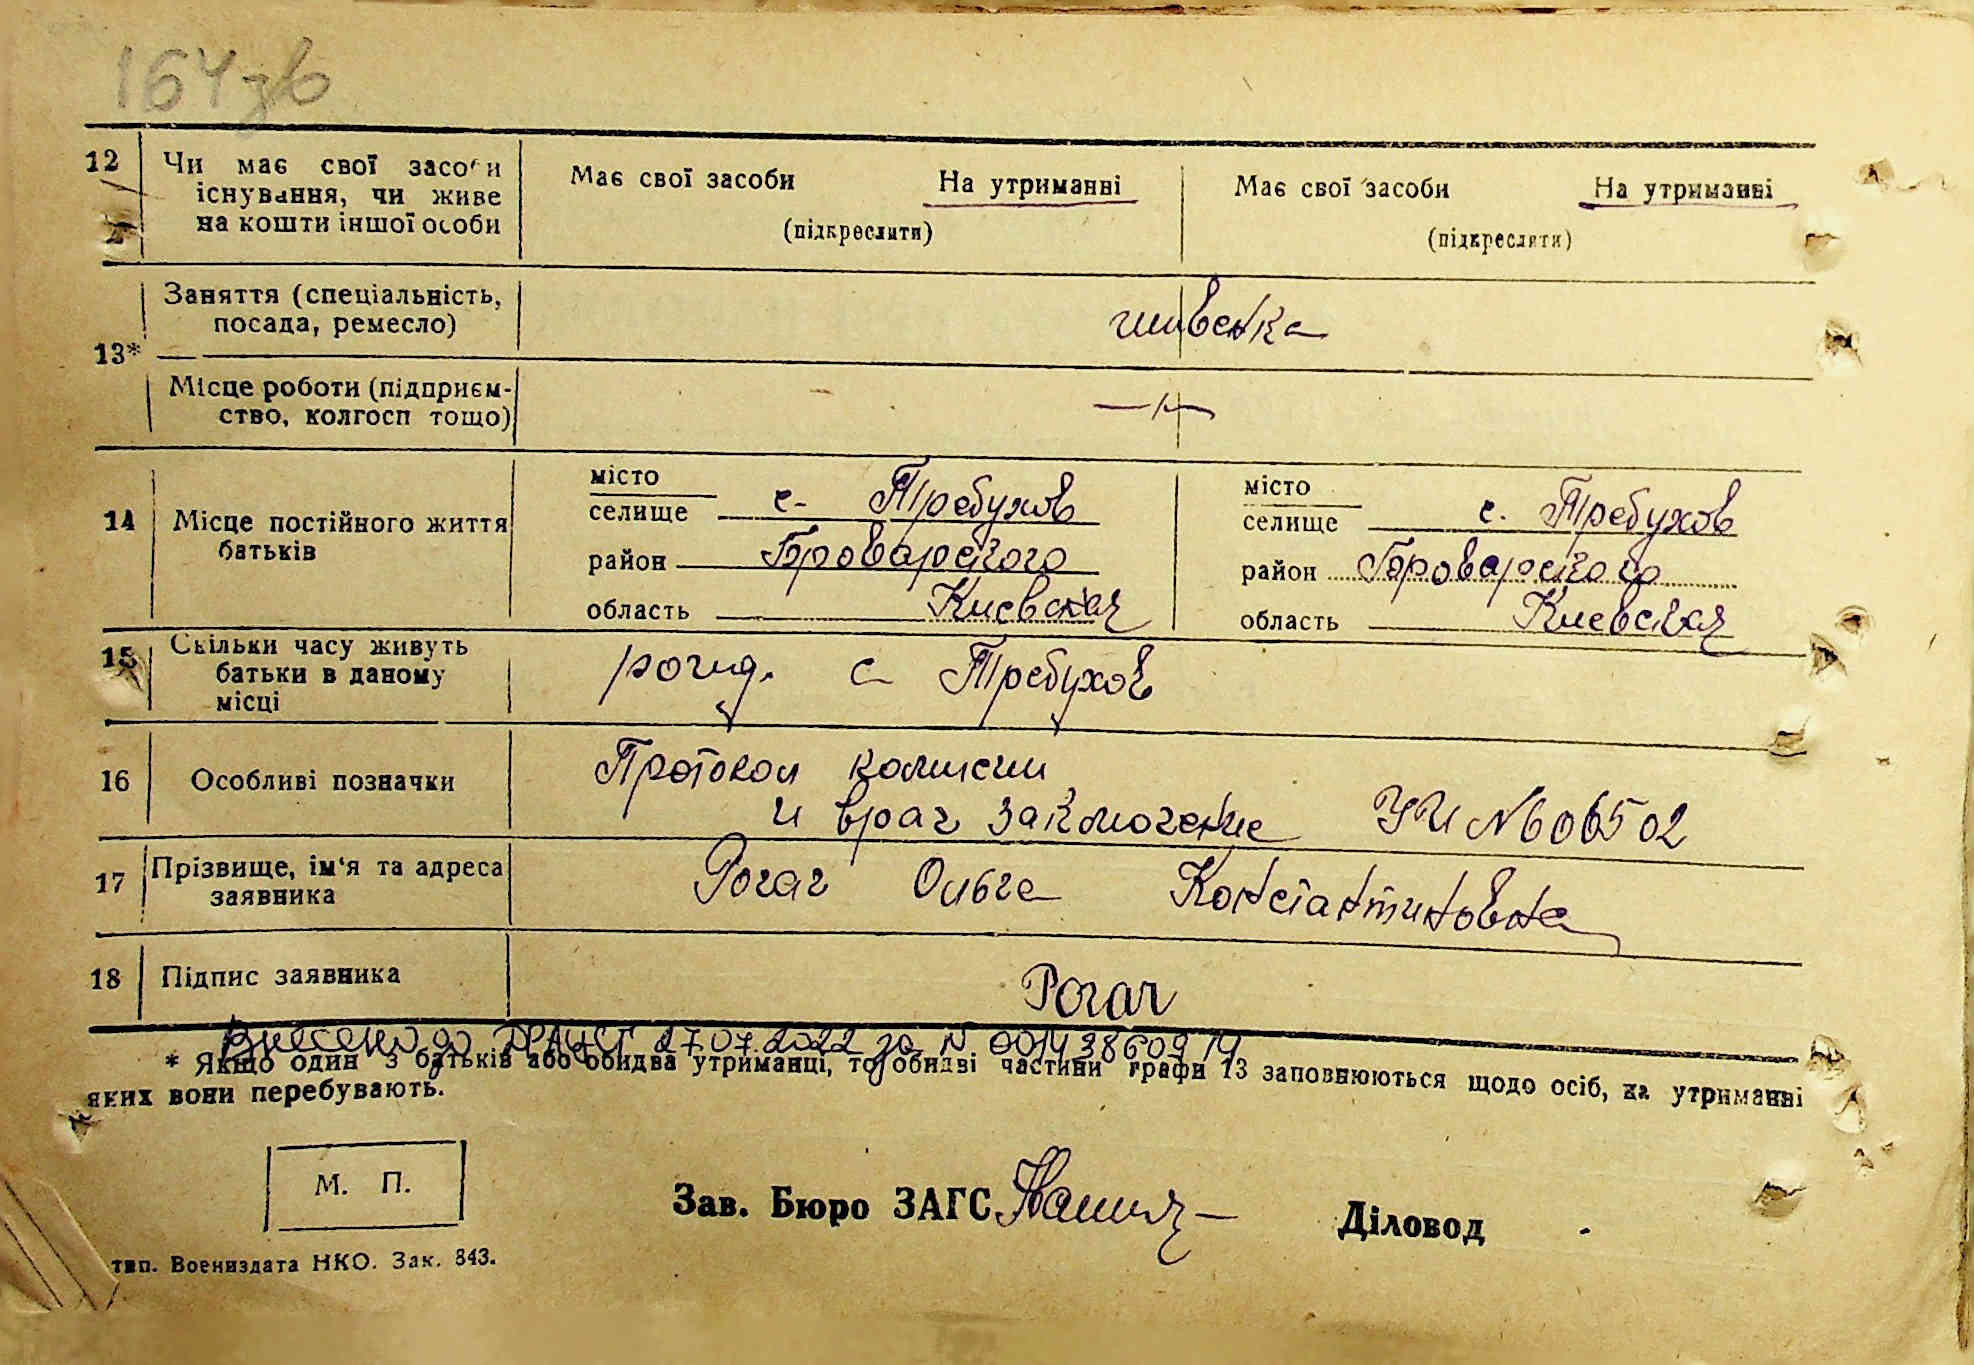 164 зв
12 Чи має свої засоби існування, чи живе на кошти іншої особи
Має свої засоби На утриманні
(підкреслити)
Має свої засоби На утриманні
(підкреслити)
13* Заняття (спеціальність, посада, ремесло)
швейка
Місце роботи (підприємство, колгосп тощо)
14 Місце постійного життя батьків
місто
селище с. Требухов
район Броварского
область Киевская
місто
селище с. Требухов
район Броварского
область Киевская
15 Скільки часу живуть батьки в даному місці
с Требухов
16 Особливі позначки
Протокол комисии
и врач заключение УЧ №606502
17 Прізвище, ім'я та адреса заявника
Рогач Ольга Константиновна
18 Підпис заявника
Рогач
Внесено до ДРАЦСГ 27.07.2022 за N 00143860914
* Якщо один з батьків або обидва утриманці, то обидві частини графи 13 заповнюються щодо осіб, на утриманні
яких вони перебувають.
М. П.
Зав. Бюро ЗАГС
Діловод
тип. Воениздата НКО. Зак. 843.